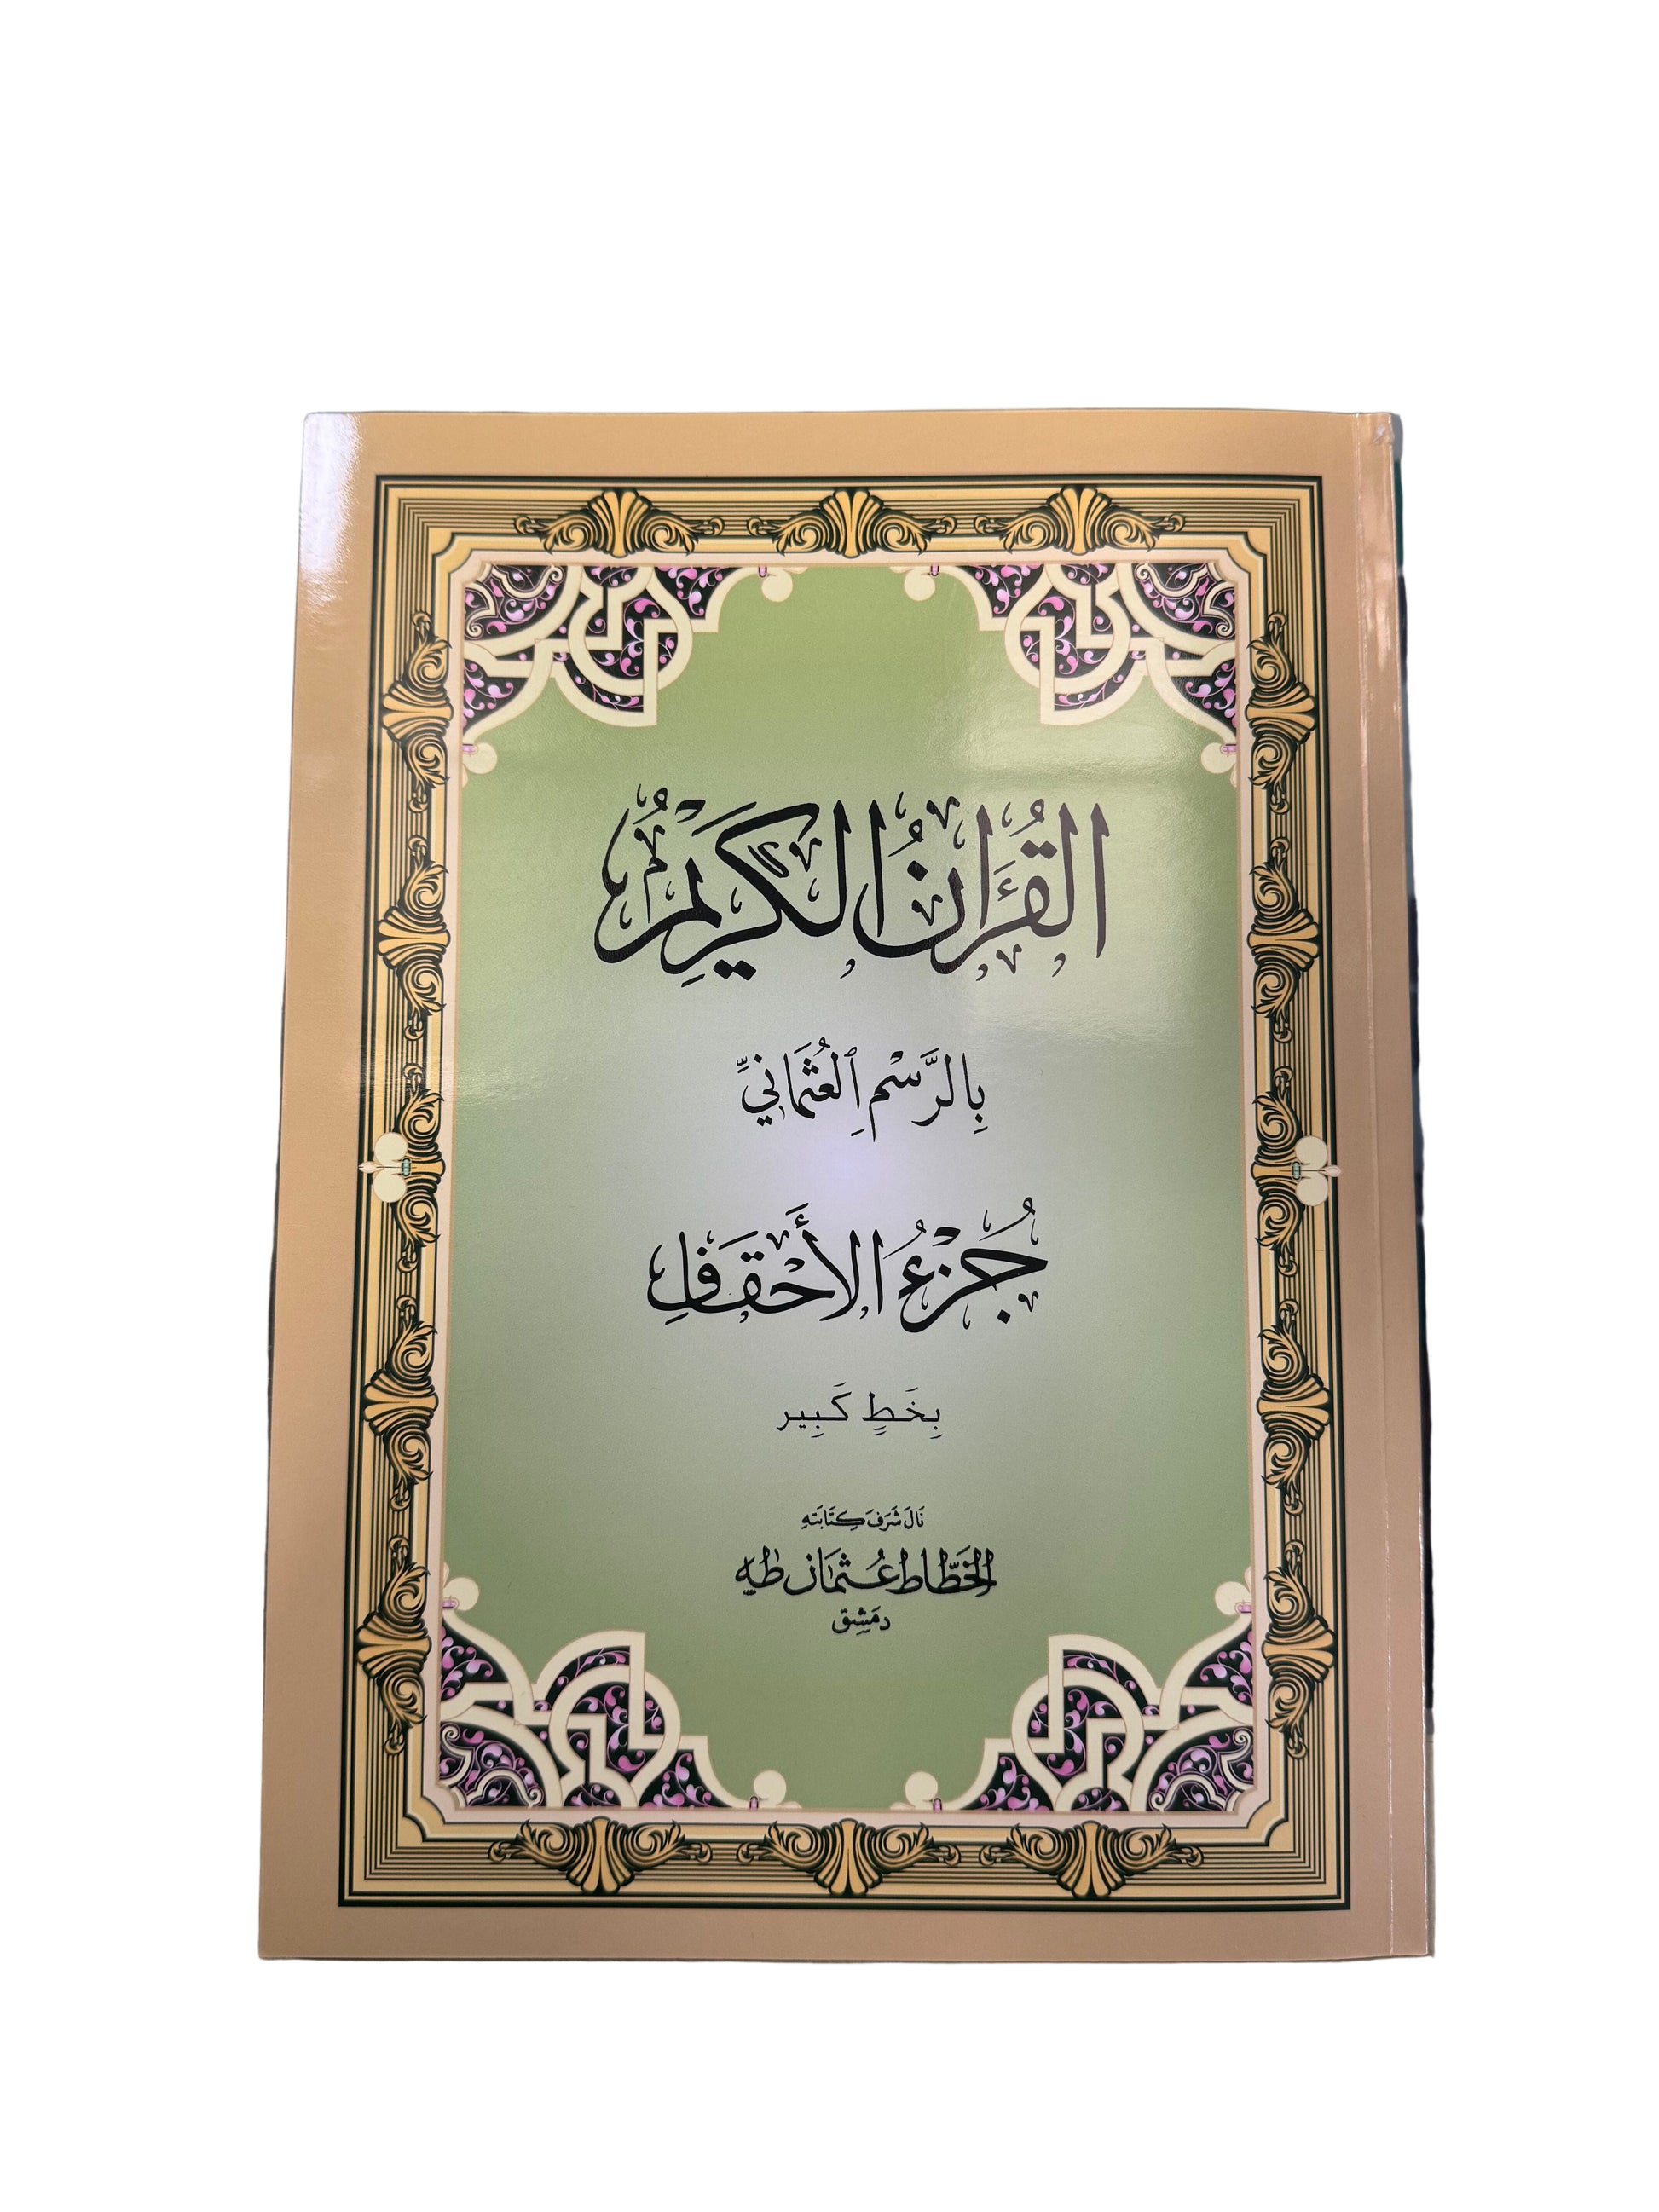 القُرْءَانُ الكَرِيْمُ
بِالرَّسْمِ ٱلْعُثْمَانِيِّ
جُزْءُ الأَحْقَافِ
بِخَطٍ كَبِير
نَالَ شَرَفَ كِتَابَتِهِ
الخَطَّاط عُثْمَان طٰه
دِمَشِق